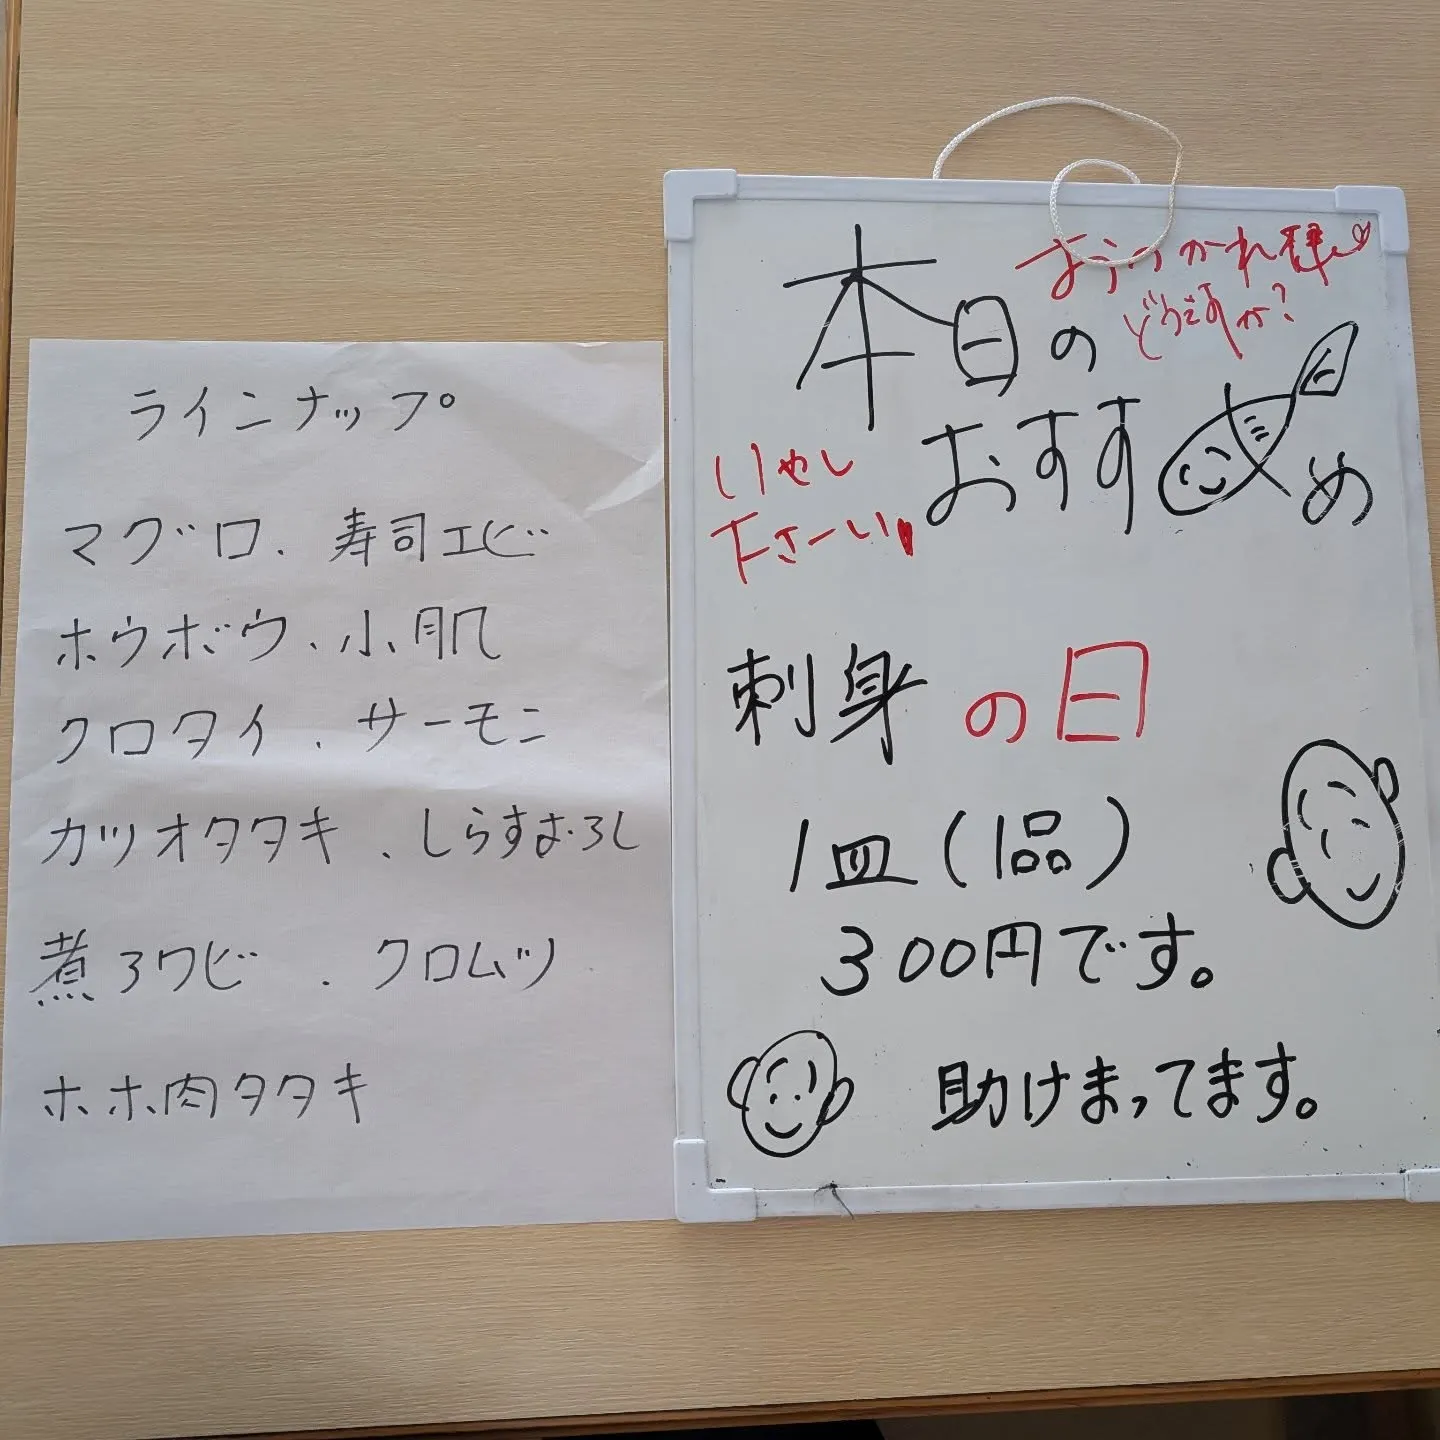 ラインナップ
マグロ、寿司エビ
ホウボウ、小肌
クロタイ、サーモン
カツオタタキ、しらすおろし
煮アワビ、クロムツ
ホホ肉タタキ
おつかれ様
どうですか？
本日の
おすすめ
いやし
下さーい
刺身の日
1皿(1品)
300円です。
助けまってます。